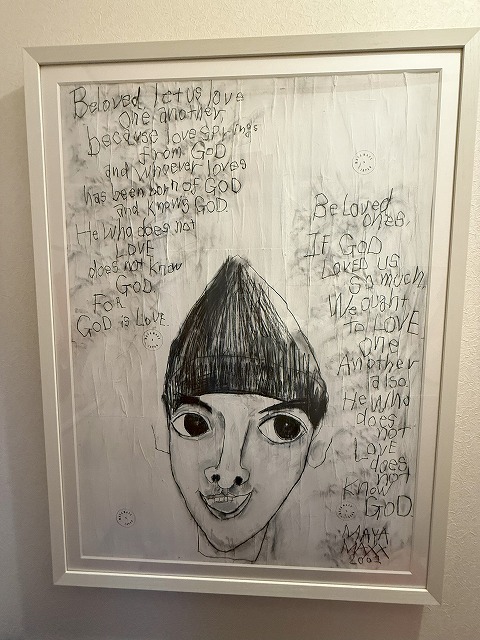 Beloved let us love
one another
because love springs
from GOD
and whoever loves
has been born of GOD
and knows GOD.
He who does not
LOVE
does not know
GOD.
FOR
GOD is LOVE.
Beloved
ones,
IF GOD
LOVED US
So much,
We ought
to LOVE
one
Another
also.
He who
does
not
LOVE
does
not
know
GOD.
MAYA
MAXX